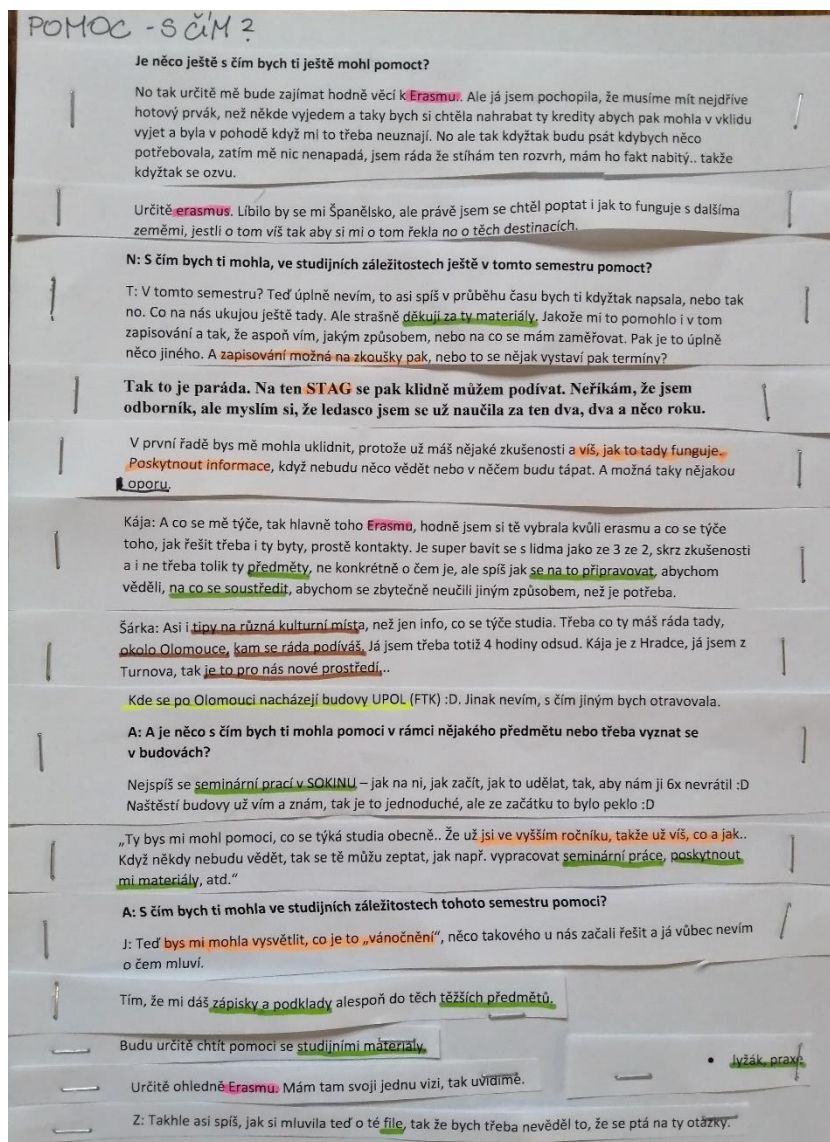 POMOC - S čÍM?
Je něco ještě s čím bych ti ještě mohl pomoct?
No tak určitě mě bude zajímat hodně věcí k Erasmu.. Ale já jsem pochopila, že musíme mít nejdříve
hotový prvák, než někde vyjedem a taky bych si chtěla nahrabat ty kredity abych pak mohla v klidu
vyjet a byla v pohodě když mi to třeba neuznají. No ale tak kdyžtak budu psát kdybych něco
potřebovala, zatím mě nic nenapadá, jsem ráda že stíhám ten rozvrh, mám ho fakt nabitý.. takže
kdyžtak se ozvu.
Určitě erasmus. Líbilo by se mi Španělsko, ale právě jsem se chtěl poptat i jak to funguje s dalšíma
zeměmi, jestli o tom víš tak aby si mi o tom řekla no o těch destinacích.
N: S čím bych ti mohla, ve studijních záležitostech ještě v tomto semestru pomoct?
T: V tomto semestru? Teď úplně nevím, to asi spíš v průběhu času bych ti kdyžtak napsala, nebo tak
no. Co na nás ukujou ještě tady. Ale strašně děkuji za ty materiály. Jakože mi to pomohlo i v tom
zapisování a tak, že aspoň vím, jakým způsobem, nebo na co se mám zaměřovat. Pak je to úplně
něco jiného. A zapisování možná na zkoušky pak, nebo to se nějak vystaví pak termíny?
Tak to je paráda. Na ten STAG se pak klidně můžem podívat. Neříkám, že jsem
odborník, ale myslím si, že ledasco jsem se už naučila za ten dva, dva a něco roku.
V první řadě bys mě mohla uklidnit, protože už máš nějaké zkušenosti a víš, jak to tady funguje.
Poskytnout informace, když nebudu něco vědět nebo v něčem budu tápat. A možná taky nějakou
oporu.
Kája: A co se mě týče, tak hlavně toho Erasmu, hodně jsem si tě vybrala kvůli erasmu a co se týče
toho, jak řešit třeba i ty byty, prostě kontakty. Je super bavit se s lidma jako ze 3 ze 2, skrz zkušenosti
a i ne třeba tolik ty předměty, ne konkrétně o čem je, ale spíš jak se na to připravovat, abychom
věděli, na co se soustředit, abychom se zbytečně neučili jiným způsobem, než je potřeba.
Šárka: Asi i tipy na různá kulturní místa, než jen info, co se týče studia. Třeba co ty máš ráda tady,
okolo Olomouce, kam se ráda podíváš. Já jsem třeba totiž 4 hodiny odsud. Kája je z Hradce, já jsem z
Turnova, tak je to pro nás nové prostředí...
Kde se po Olomouci nacházejí budovy UPOL (FTK) :D. Jinak nevím, s čím jiným bych otravovala.
A: A je něco s čím bych ti mohla pomoci v rámci nějakého předmětu nebo třeba vyznat se
v budovách?
Nejspíš se seminární prací v SOKINU – jak na ni, jak začít, jak to udělat, tak, aby nám ji 6x nevrátil :D
Naštěstí budovy už vím a znám, tak je to jednoduché, ale ze začátku to bylo peklo :D
„Ty bys mi mohl pomoci, co se týká studia obecně.. Že už jsi ve vyšším ročníku, takže už víš, co a jak..
Když někdy nebudu vědět, tak se tě můžu zeptat, jak např. vypracovat seminární práce, poskytnout
mi materiály, atd.“
A: S čím bych ti mohla ve studijních záležitostech tohoto semestru pomoci?
J: Teď bys mi mohla vysvětlit, co je to „vánočnění“, něco takového u nás začali řešit a já vůbec nevím
o čem mluví.
Tím, že mi dáš zápisky a podklady alespoň do těch těžších předmětů.
Budu určitě chtít pomoci se studijními materiály.
• lyžák, praxe
Určitě ohledně Erasmu. Mám tam svoji jednu vizi, tak uvidíme.
Z: Takhle asi spíš, jak si mluvila teď o té file, tak že bych třeba nevěděl to, že se ptá na ty otázky.